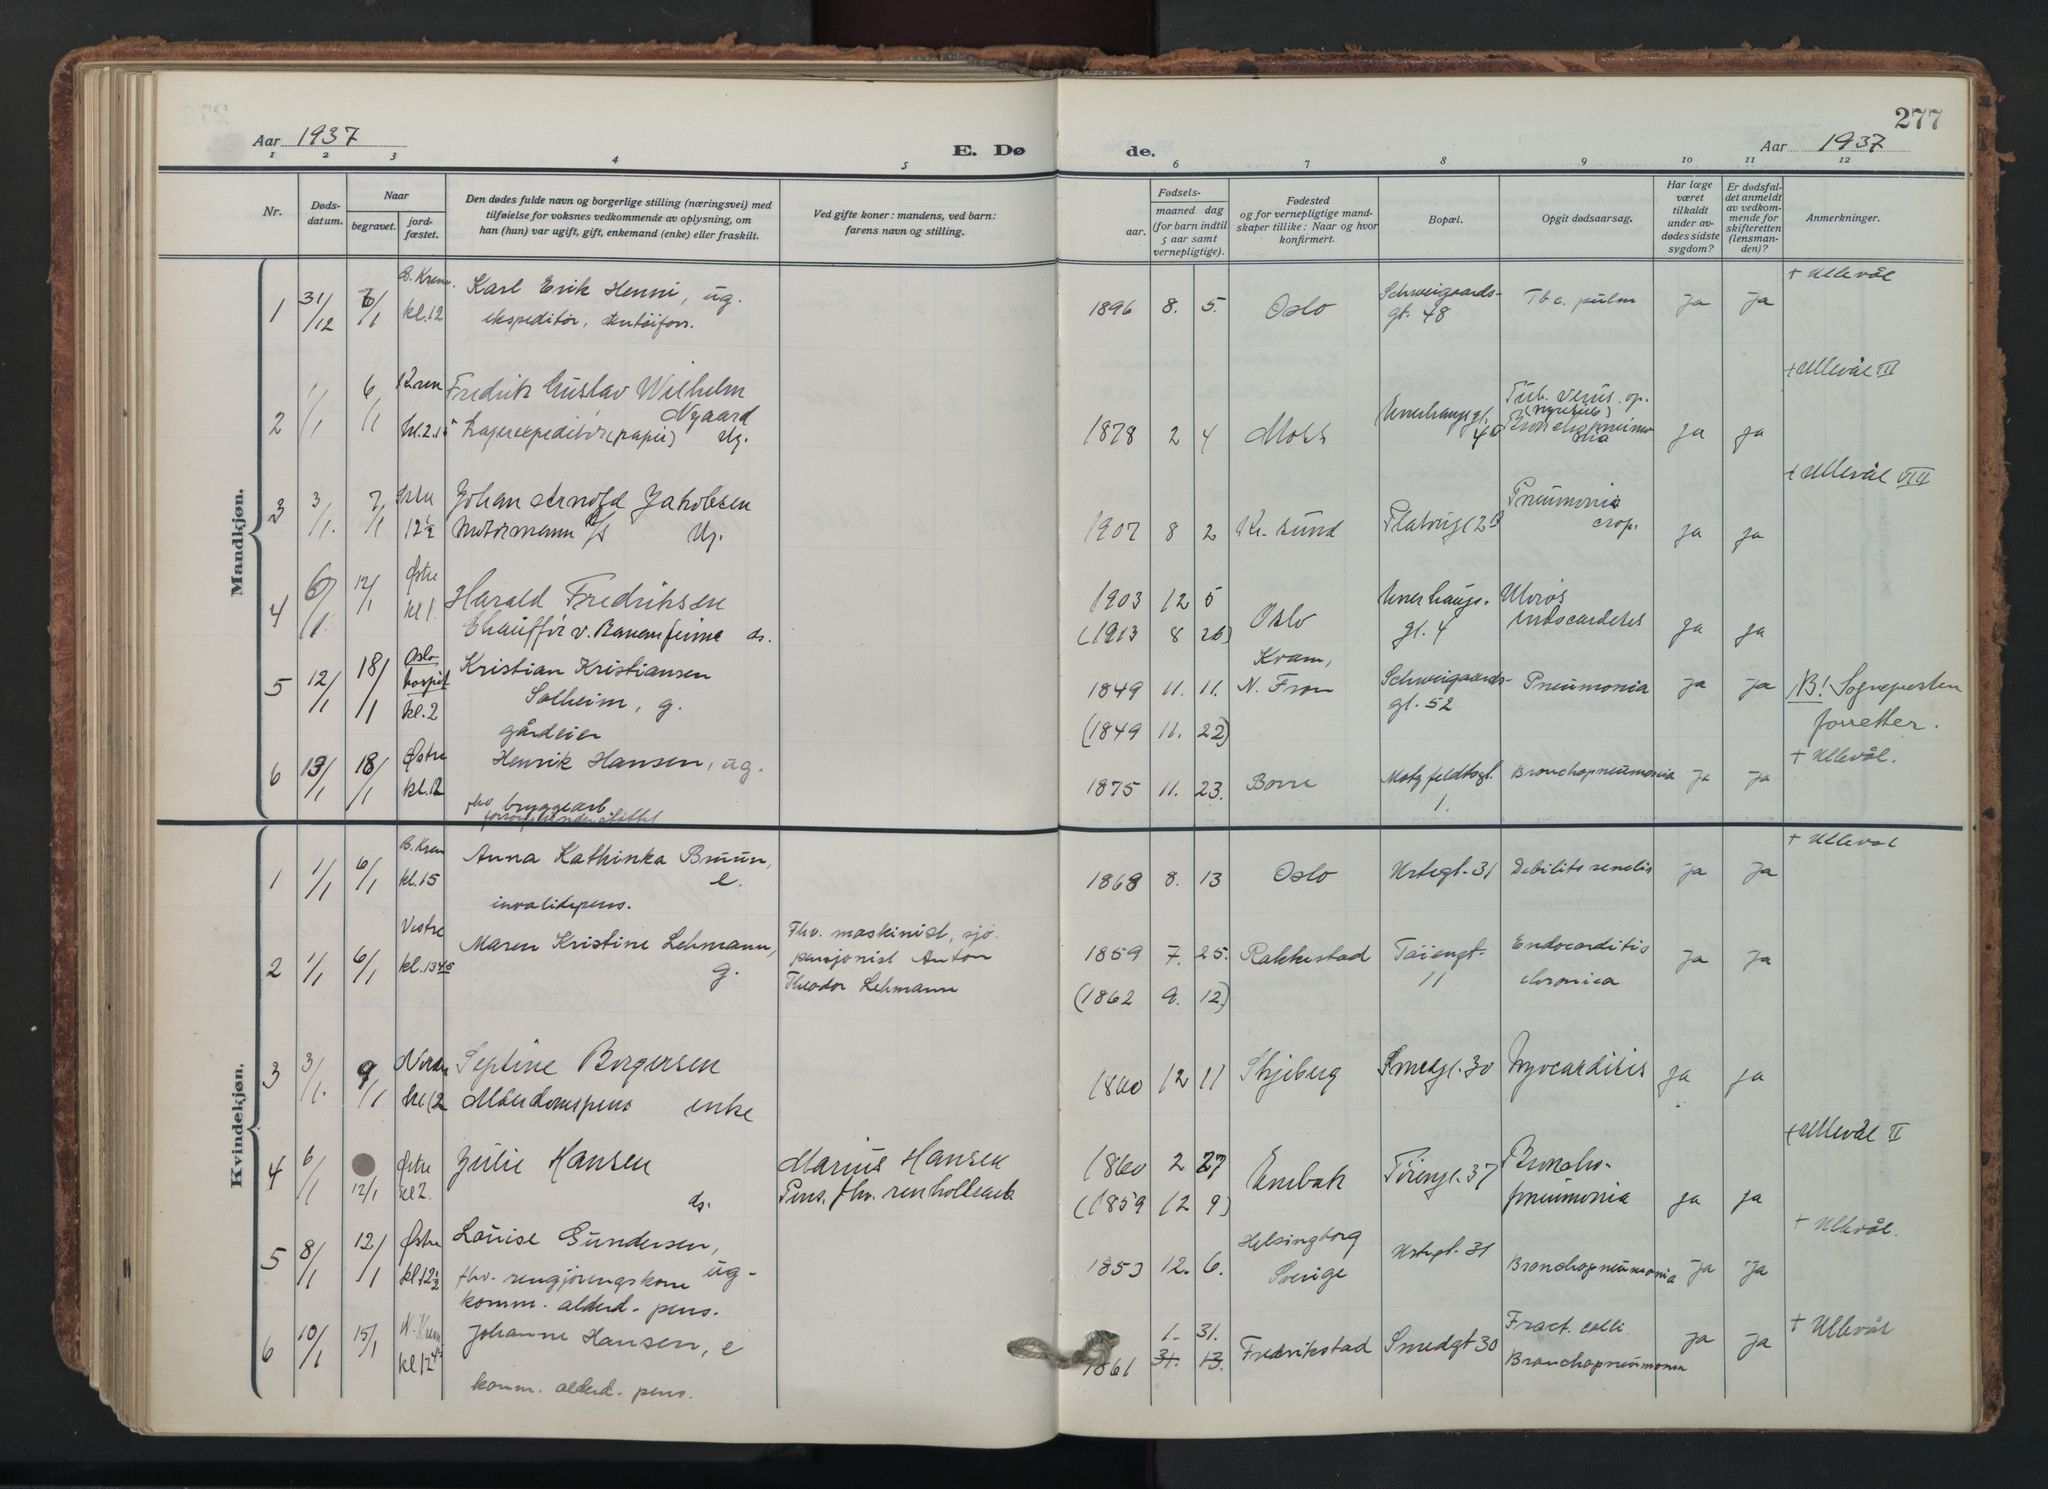 277
Aar 1937
E. Dø
de.
Aar 1937
1 2 3 4 5 6 7 8 9 10 11 12
Nr.
Døds-
datum.
Naar
begravet.
jord-
fæstet.
Den dødes fulde navn og borgerlige stilling (næringsvei) med
tilføielse for voksnes vedkommende av oplysning, om
han (hun) var ugift, gift, enkemand (enke) eller fraskilt.
Ved gifte koner: mandens, ved barn:
farens navn og stilling.
Fødsels-
aar.
maaned dag
(for barn indtil
5 aar samt
vernepligtige).
Fødested
og for vernepligtige mand-
skaper tillike: Naar og hvor
konfirmert.
Bopæl.
Opgit dødsaarsag.
Har læge
været
tilkaldt
under av-
dødes sidste
sygdom?
Er dødsfal-
det anmeldt
av vedkom-
mende for
skifteretten
(lensman-
den)?
Anmerkninger.
Mandkjøn.
1 31/12 6/1 kl.12 Karl Erik Henni, ug.
ekspeditør,
1896 8. 5. Oslo Schweigaards-
gt. 48 Tbc. pulm ja ja + Ullevål
2 1/1 6/1 Krem kl.2.15 Fredrik Gustav Wilhelm
Nygaard
Lagerexpeditör (papir) Ug.
1878 2 4 Moss Enerhaugsgt.
ja ja + Ullevål III
3 3/1. 7/1 12½ Johan Arnold Jakobsen
Motormann Ug.
1907 8 2 Kr. sund Pneumonia
crop. ja ja + Ullevål VII
4 6/1 12/1 Østre kl 1. Harald Fredriksen
Chaufför v. ds.
1903 12 5
(1913 8 26) Oslo Enerhaugs-
gt. 4 Ulcrös
Endocarditis ja ja
5 12/1 18/1 Oslo
hospit
kl.2 Kristian Kristiansen
Solheim, g.
gårdeier
1849 11. 11.
(1849 11. 22) Kvam,
N. Fron Schweigaards-
gt. 52 Pneumonia ja ja NB! Sognepresten
forretter.
6 13/1 18/1 Østre kl.12 Henrik Hansen, ug.
fhv. bryggearb
1875 11. 23. Borre Motzfeldtsgt.
1. Bronchopneumonia ja ja + Ullevål.
Kvindekjøn.
1 1/1 6/1 kl.15 Anna Kathinka Bruun,
e.
invalidepens.
1868 8. 13 Oslo Urtegt. 31 Debilitas senilis ja ja + Ullevål
2 1/1 6/1 Vestre
kl.1345 Maren Kristine Lehmann,
g.
Fhv. maskinist, sjø.
pensjonist Anton
Theodor Lehmann
1859 7. 25.
(1862 9. 12) Rakkestad Töiengt.
11 Endocarditis
chronica ja ja
3 3/1. 9/1 Nordre
kl 12 Septine Borgersen
Alderdomspens enke
1860 12 11 Skjeberg Smedgt. 30 Myocarditis ja ja
4 6/1 12/1 Østre
kl 2. Julie Hansen
ds.
Marius Hansen
Pens. fhv. renholdsarb
1860 2 27
(1859 12 9) Enebak Töiengt. 37 Broncho-
pneumonia ja ja + Ullevål II
5 8/1 12/1 Østre
kl.12½ Louise Gundersen,
ug.
fhv. rengjøringskone
komm. alderd. pens.
1853 12. 6. Helsingborg
Sverige Urtegt. 31 Bronchopneumonia ja ja + Ullevål.
6 10/1 15/1 V. Krem
kl 12 45 Johanne Hansen, e
komm. alderd. pens.
1861 1. 31.
31. 13. Fredrikstad Smedgt 30 Fract. colli.
Bronchopneumonia ja ja + Ullevål